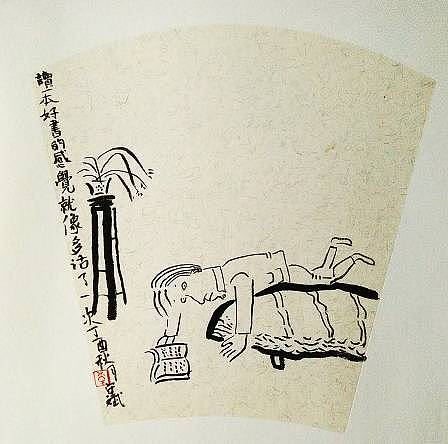 讀一本好書的感覺就像多活了一次丁酉秋月